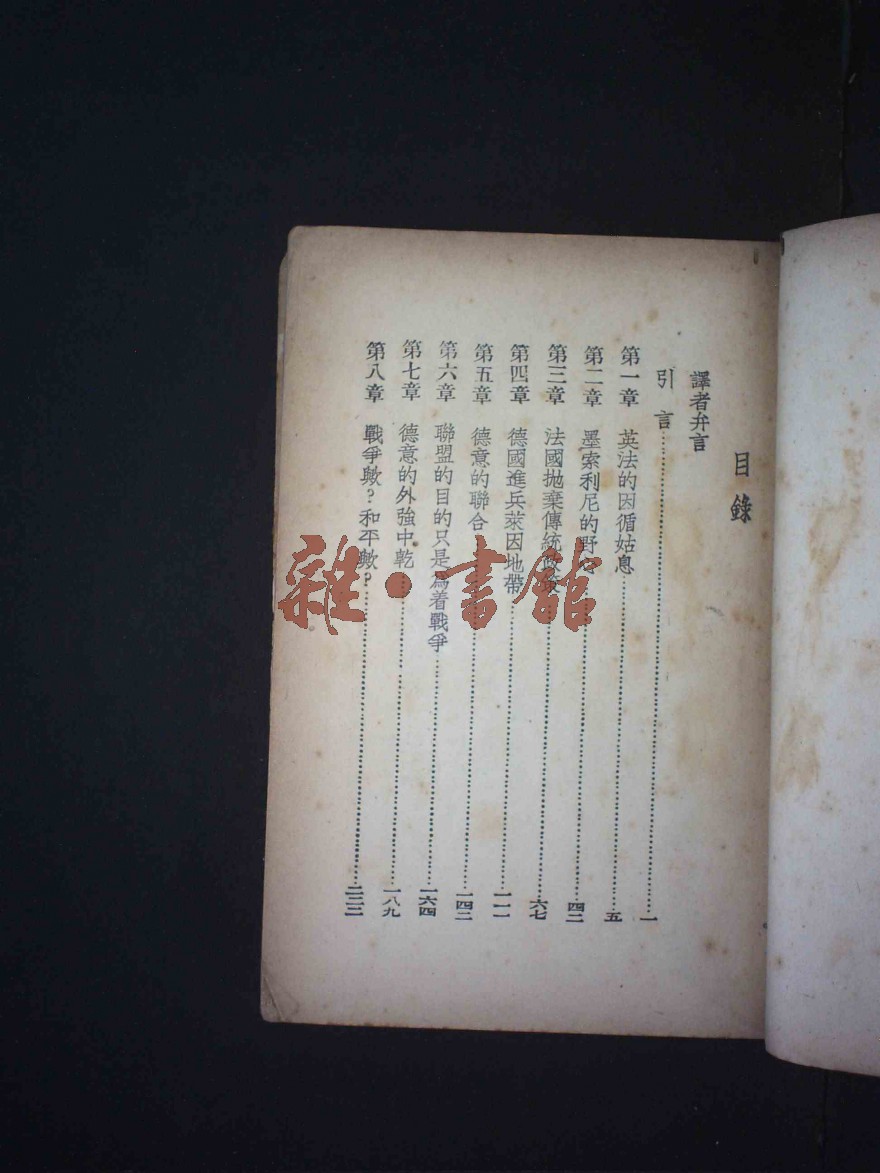 目錄
譯者弁言
引言……一
第一章 英法的因循姑息……五
第二章 墨索利尼的野心……四二
第三章 法國拋棄傳統政策……六七
第四章 德國進兵萊因地帶……一一一
第五章 德意的聯合……一四二
第六章 聯盟的目的只是爲着戰爭……一六四
第七章 德意的外強中乾……一八九
第八章 戰爭歟?和平歟?……二三二
雜·書館